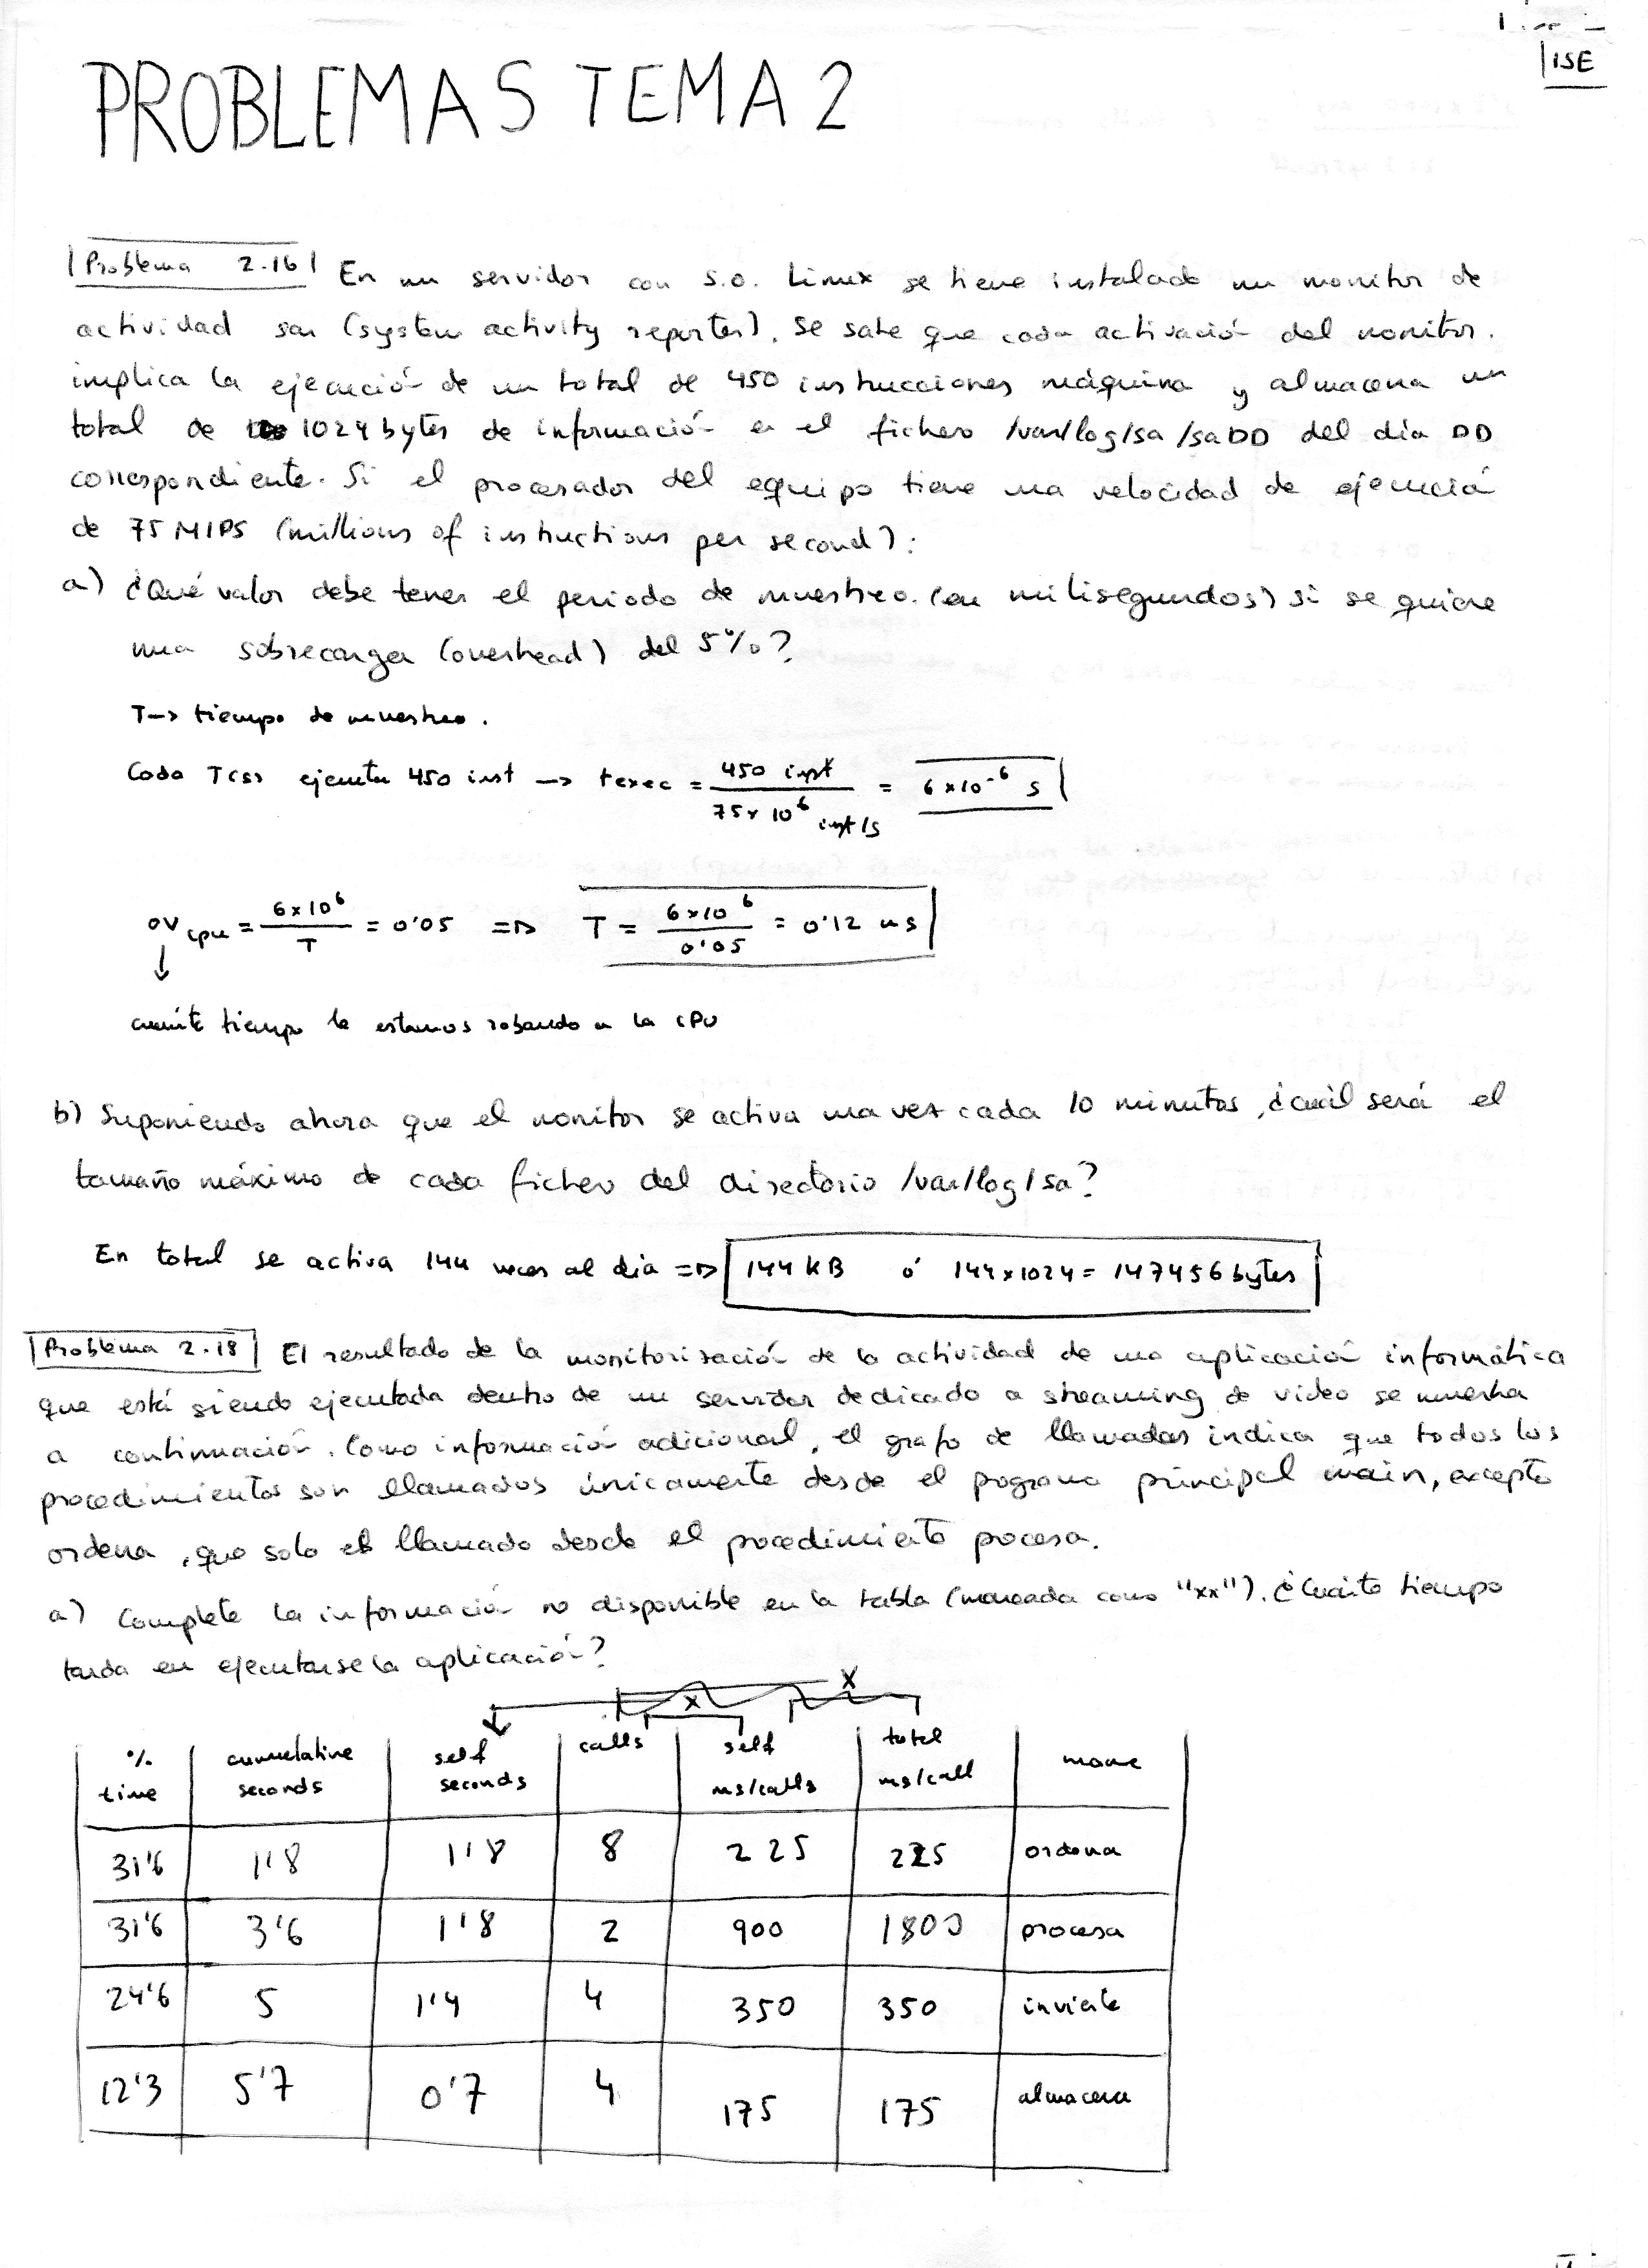 ISE
PROBLEMAS TEMA 2
Problema 2.16 En un servidor con S.O. Linux se tiene instalado un monitor de
actividad sar (system activity reporter). Se sabe que cada activación del monitor.
implica la ejecución de un total de 450 instrucciones máquina y almacena un
total de 1024 bytes de información en el fichero /var/log/sa/saDD del día DD
correspondiente. Si el procesador del equipo tiene una velocidad de ejecución
de 75 MIPS (millions of instructions per second):
a) ¿Qué valor debe tener el periodo de muestreo. (en milisegundos) si se quiere
una sobrecarga (overhead) del 5%?
T → tiempo de muestreo.
Cada T(s) ejecuta 450 inst → texec = 450 inst / 75x10^6 inst/s = 6x10^-6 s
ov cpu = 6x10^6 / T = 0'05 => T = 6x10^6 / 0'05 = 0'12 ms
↓
cuánto tiempo le estamos robando a la CPU
b) Suponiendo ahora que el monitor se activa una vez cada 10 minutos, ¿cuál será el
tamaño máximo de cada fichero del directorio /var/log/sa?
En total se activa 144 veces al día => 144 kB ó 144x1024 = 147456 bytes
Problema 2.18 El resultado de la monitorización de la actividad de una aplicación informática
que está siendo ejecutada dentro de un servidor dedicado a streaming de video se muestra
a continuación. Como información adicional, el grafo de llamadas indica que todos los
procedimientos son llamados únicamente desde el programa principal main, excepto
ordena, que solo es llamado desde el procedimiento procesa.
a) Complete la información no disponible en la tabla (marcada como "xx"). ¿Cuánto tiempo
tarda en ejecutarse la aplicación?
x x
% time | cumulative seconds | self seconds | calls | self ms/calls | total ms/call | name
31'6 | 1'8 | 1'8 | 8 | 225 | 225 | ordena
31'6 | 3'6 | 1'8 | 2 | 900 | 1800 | procesa
24'6 | 5 | 1'4 | 4 | 350 | 350 | invierte
12'3 | 5'7 | 0'7 | 4 | 175 | 175 | almacena